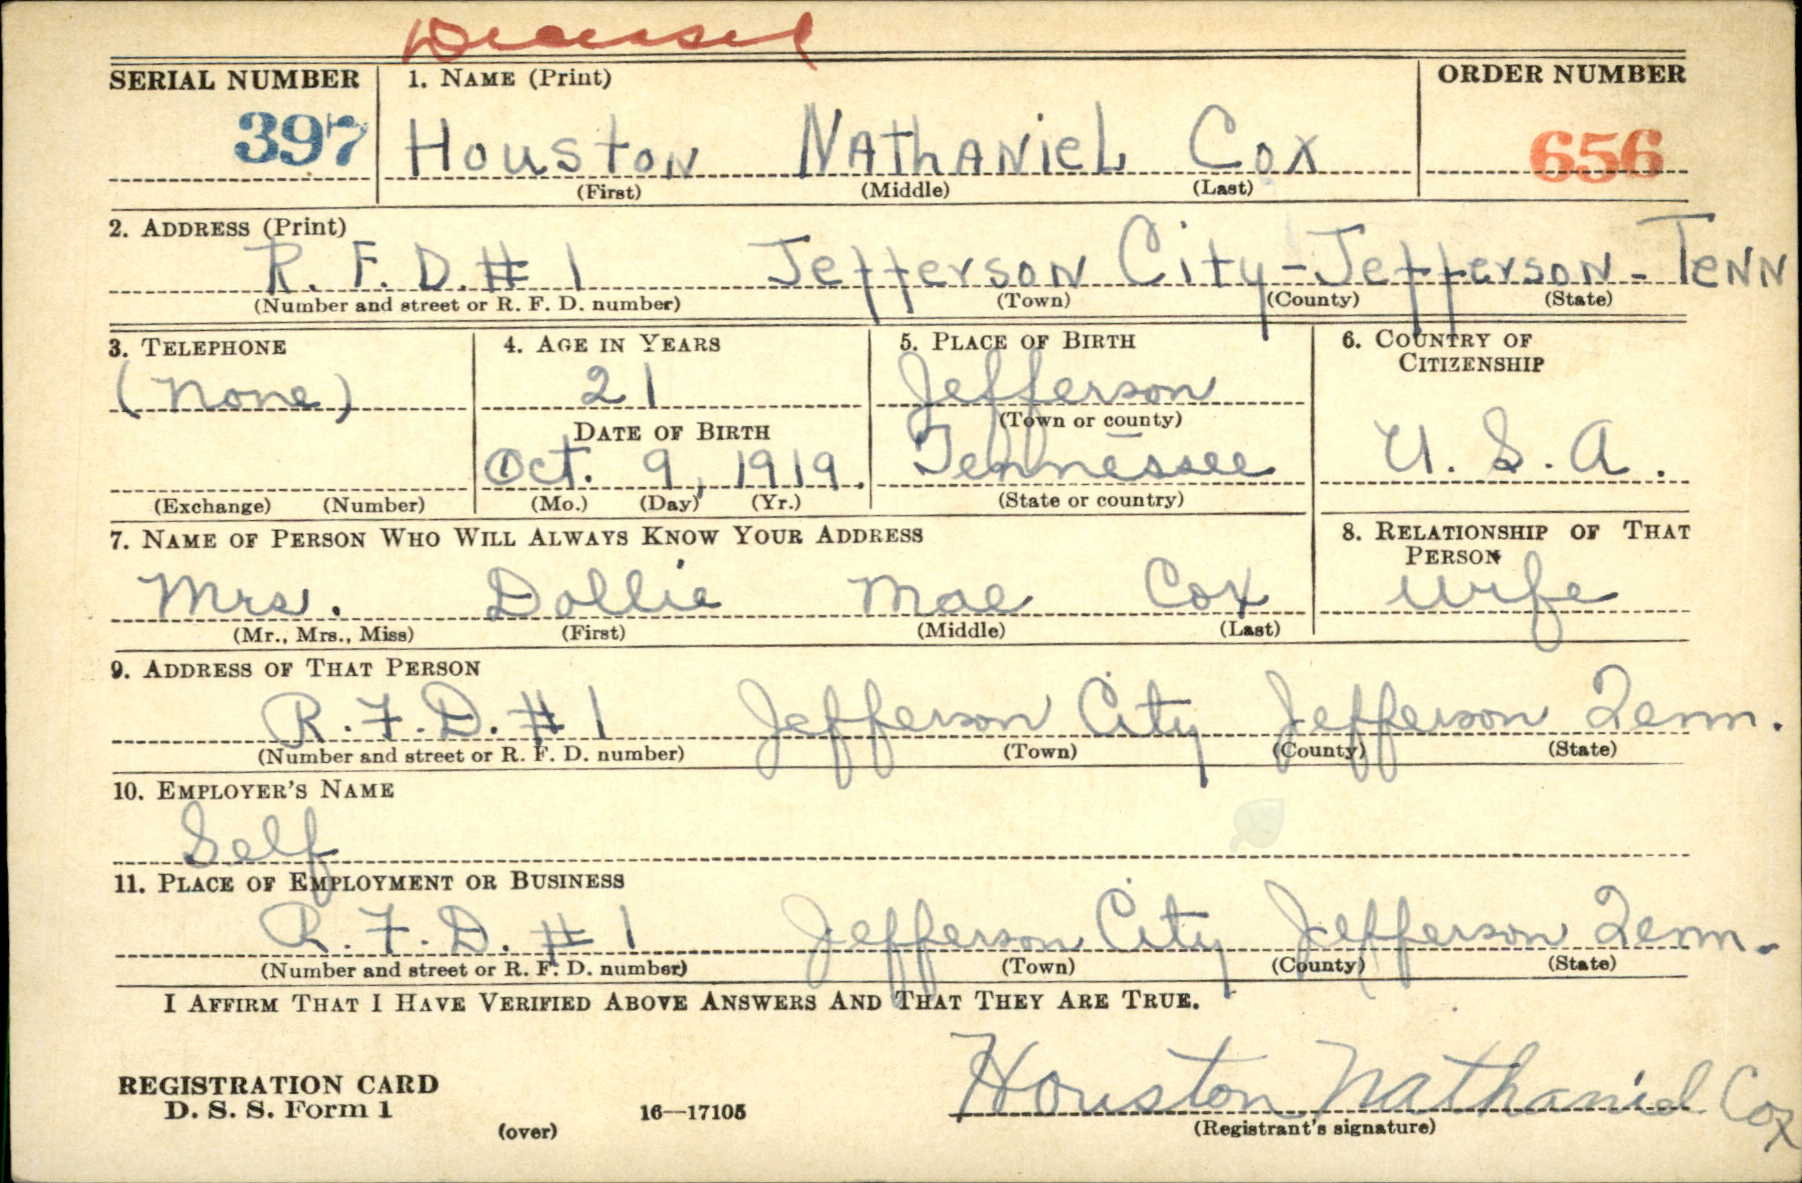 Deceased
SERIAL NUMBER 1. NAME (Print) ORDER NUMBER
397 Houston Nathaniel Cox 656
(First) (Middle) (Last)
2. ADDRESS (Print)
R. F. D. # 1 Jefferson City - Jefferson - Tenn
(Number and street or R. F. D. number) (Town) (County) (State)
3. TELEPHONE 4. AGE IN YEARS 5. PLACE OF BIRTH 6. COUNTRY OF
CITIZENSHIP
(none) 21 Jefferson
(Town or county)
DATE OF BIRTH
Oct. 9, 1919. Tennessee U. S. A.
(Exchange) (Number) (Mo.) (Day) (Yr.) (State or country)
7. NAME OF PERSON WHO WILL ALWAYS KNOW YOUR ADDRESS 8. RELATIONSHIP OF THAT
PERSON
Mrs. Dollie Mae Cox wife
(Mr., Mrs., Miss) (First) (Middle) (Last)
9. ADDRESS OF THAT PERSON
R. F. D. # 1 Jefferson City Jefferson Tenn.
(Number and street or R. F. D. number) (Town) (County) (State)
10. EMPLOYER'S NAME
Self
11. PLACE OF EMPLOYMENT OR BUSINESS
R. F. D. # 1 Jefferson City Jefferson Tenn.
(Number and street or R. F. D. number) (Town) (County) (State)
I AFFIRM THAT I HAVE VERIFIED ABOVE ANSWERS AND THAT THEY ARE TRUE.
REGISTRATION CARD
D. S. S. Form 1 16—17105 Houston Nathaniel Cox
(over) (Registrant's signature)